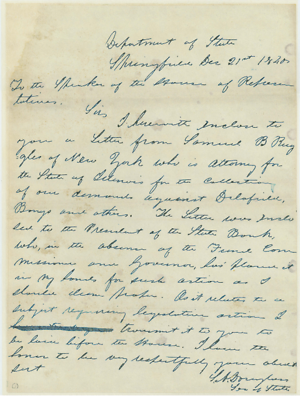 Department of State
Springfield Dec 21st 1840
To the Speaker of the House of Represen
tatives.
Sir
I herewith enclose to
you a letter from Samuel B Rug
gles of New York who is attorney for
the State of Illinois for the collection
of our demands against Delafield,
and others. The letter was enclo
sed to the President of the State Bank,
who, in the absence of the Fund Com
missioner and Governor, has placed it
in my hands for such action as I
should deem proper. As it relates to a
subject requiring legislative action I
transmit it to you to
be laid before the House. I have the
honor to be very respectfully your obedient
servt
S. A. Douglass
Sec of State